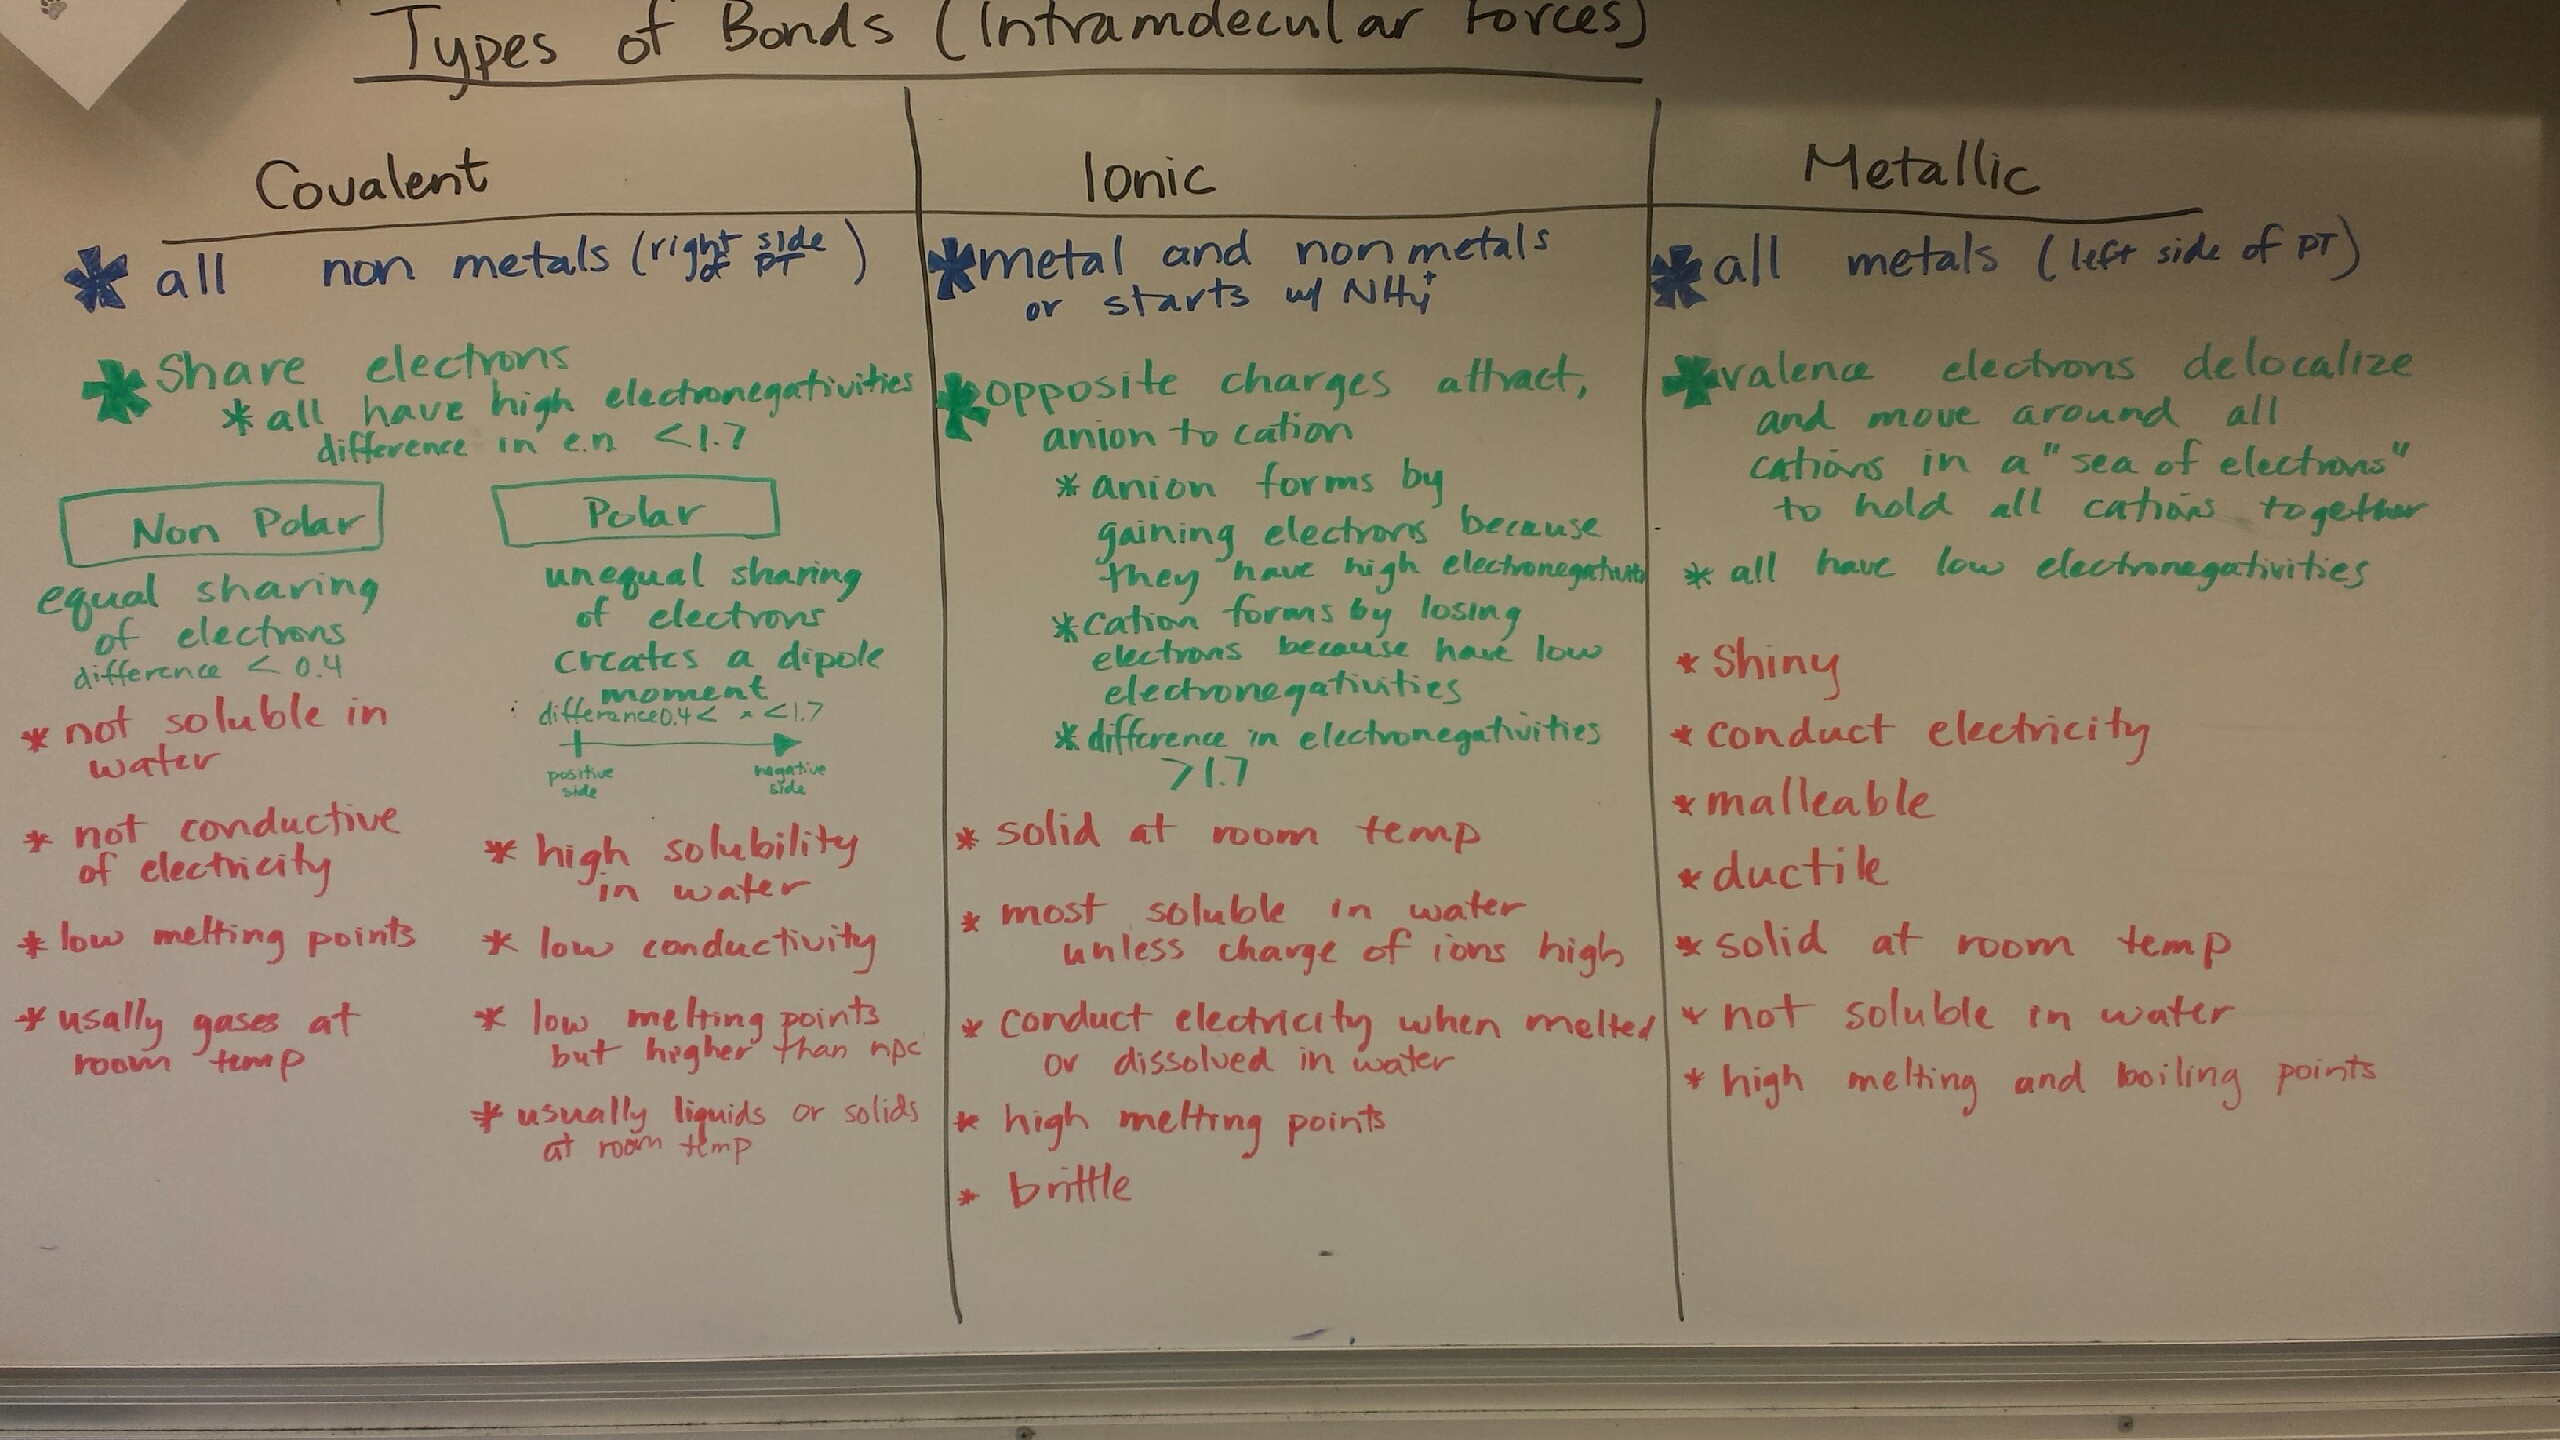 Types of Bonds (Intramolecular Forces)
Covalent
* all non metals (right side
of PT)
* Share electrons
* all have high electronegativities
difference in e.n. <1.7
Non Polar
equal sharing
of electrons
difference < 0.4
* not soluble in
water
* not conductive
of electricity
* low melting points
* usally gases at
room temp
Polar
unequal sharing
of electrons
creates a dipole
moment
difference 0.4 < x <1.7
positive
side
negative
side
* high solubility
in water
* low conductivity
* low melting points
but higher than npc
* usually liquids or solids
at room temp
Ionic
* metal and non metals
or starts w/ NH₄⁺
* opposite charges attract,
anion to cation
* anion forms by
gaining electrons because
they have high electronegativity
* cation forms by losing
electrons because have low
electronegativities
* difference in electronegativities
>1.7
* solid at room temp
* most soluble in water
unless charge of ions high
* conduct electricity when melted
or dissolved in water
* high melting points
* brittle
Metallic
* all metals (left side of PT)
* valence electrons delocalize
and move around all
cations in a "sea of electrons"
to hold all cations together
* all have low electronegativities
* shiny
* conduct electricity
* malleable
* ductile
* solid at room temp
* not soluble in water
* high melting and boiling points